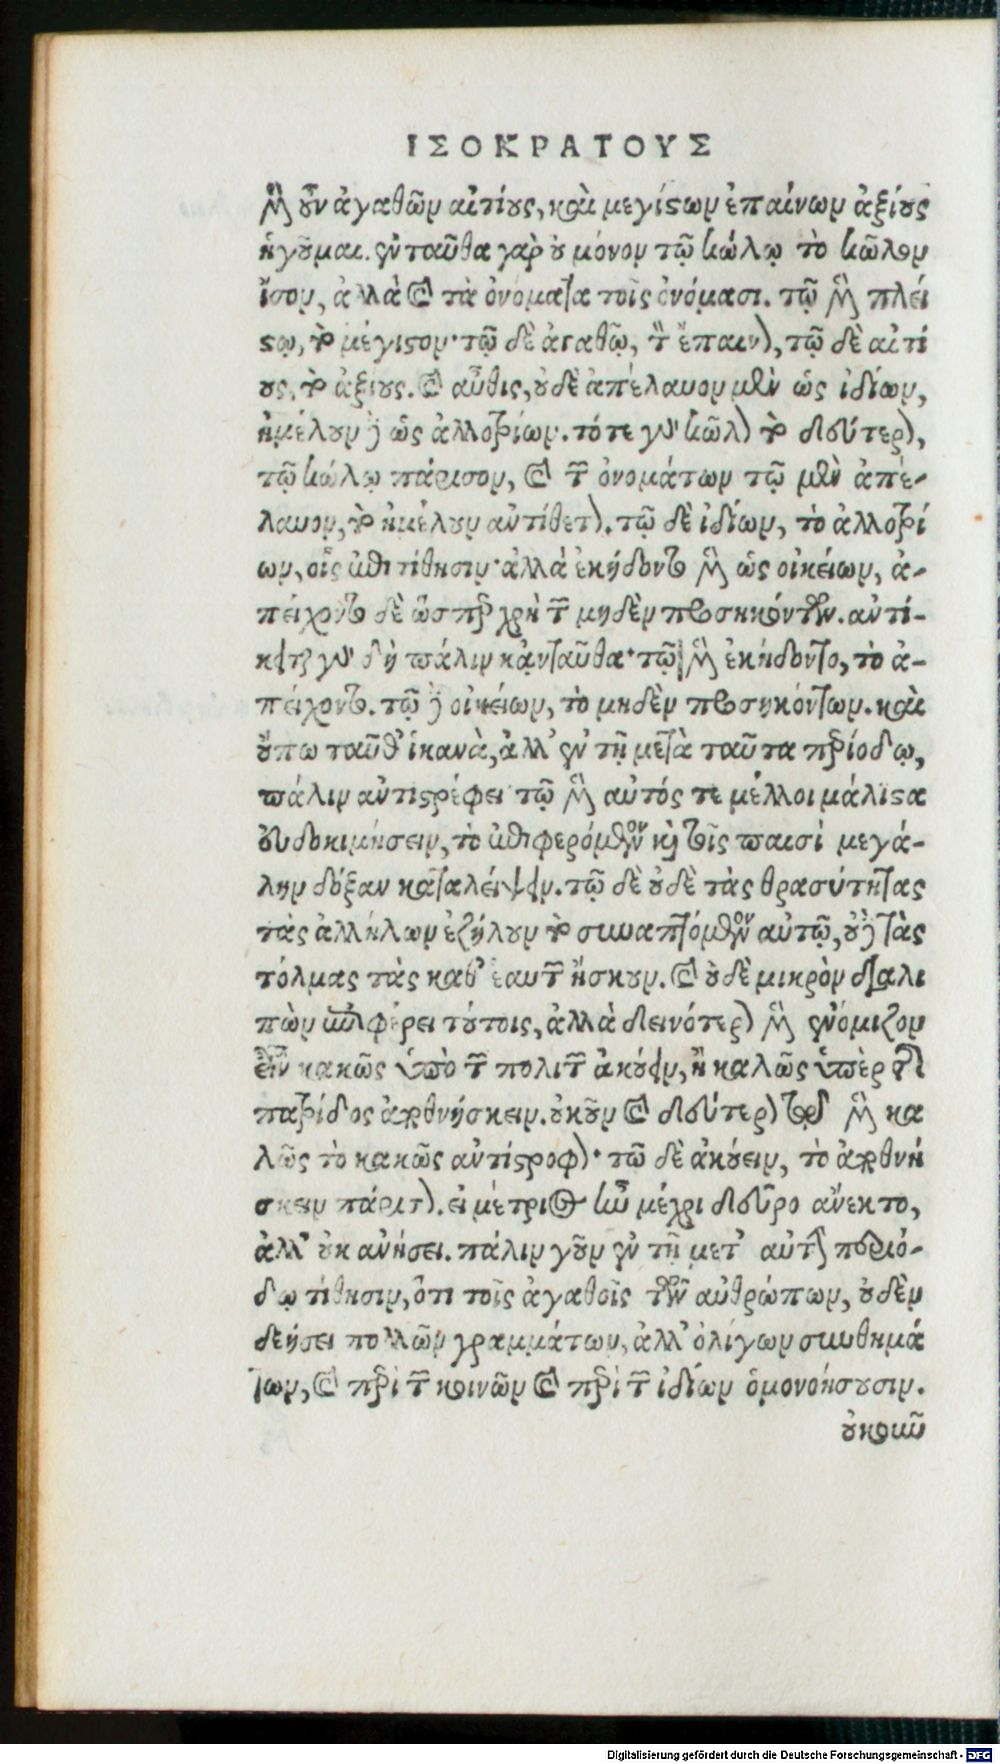 ΙΣΟΚΡΑΤΟΥΣ
μὲν οὖν ἀγαθῶν αἰτίους, καὶ μεγίστων ἐπαίνων ἀξίους
ἡγοῦμαι. ἐνταῦθα γὰρ οὐ μόνον τῷ κώλῳ τὸ κῶλον
ἴσον, ἀλλὰ καὶ τὰ ὀνόματα τοῖς ὀνόμασι. τῷ μὲν πλεί
στῳ, τὸ μέγιστον· τῷ δὲ ἀγαθῷ, τὸν ἔπαινον, τῷ δὲ αἰτί
ους, τὸ ἀξίους. καὶ αὖθις, οὐδὲ ἀπέλαυον μὲν ὡς ἰδίων,
ἠμέλουν δὲ ὡς ἀλλοτρίων. τότε γὰρ κῶλον τὸ δεύτερον,
τῷ κώλῳ πάρισον, καὶ τῶν ὀνομάτων τῷ μὲν ἀπέ-
λαυον, τὸ ἠμέλουν ἀντίθετον. τῷ δὲ ἰδίων, τὸ ἀλλοτρί
ων, οἷς ἐπιτίθησιν· ἀλλὰ ἐκήδοντο μὲν ὡς οἰκείων, ἀ-
πείχοντο δὲ ὥσπερ χρὴ τῶν μηδὲν προσηκόντων. ἀντί-
κειται γὰρ δὴ πάλιν κἀνταῦθα· τῷ μὲν ἐκήδοντο, τὸ ἀ-
πείχοντο. τῷ δὲ οἰκείων, τὸ μηδὲν προσηκόντων. καὶ
οὔπω ταῦθ' ἱκανὰ, ἀλλ' ἐν τῇ μετὰ ταῦτα περίοδῳ,
πάλιν ἀντιστρέφει τῷ μὲν αὐτός τε μέλλοι μάλιστα
εὐδοκιμήσειν, τὸ ἐπιφερόμενον καὶ τοῖς παισὶ μεγά-
λην δόξαν καταλείψειν. τῷ δὲ οὐδὲ τὰς θρασύτητας
τὰς ἀλλήλων ἐζήλουν τὸ συναπτόμενον αὐτῷ, οὐδὲ τὰς
τόλμας τὰς καθ' ἑαυτῶν ἤσκουν. καὶ οὐδὲ μικρὸν διαλι
πὼν ἐπιφέρει τούτοις, ἀλλὰ δεινότερον μὲν ἐνόμιζον
εἶναι κακῶς ὑπὸ τῶν πολιτῶν ἀκούειν, ἢ καλῶς ὑπὲρ τῆς
πατρίδος ἀποθνήσκειν. οὐκοῦν καὶ δεύτερον τοῦδε μὲν κα
λῶς τὸ κακῶς ἀντίστροφον· τῶ δὲ ἀκούειν, τὸ ἀποθνή
σκειν πάρισον. εἰ μέτριος ἦν μέχρι δεῦρο ἄνεκτο,
ἀλλ' οὐκ ἀνήσει. πάλιν γοῦν ἐν τῇ μετ' αὐτὴν περιό-
δῳ τίθησιν, ὅτι τοῖς ἀγαθοῖς τῶν ἀνθρώπων, οὐδὲν
δεήσει πολλῶν γραμμάτων, ἀλλ' ὀλίγων συνθημά
των, καὶ περὶ τῶν κοινῶν καὶ περὶ τῶν ἰδίων ὁμονοήσουσιν.
οὐκοῦν
Digitalisierung gefördert durch die Deutsche Forschungsgemeinschaft - DFG